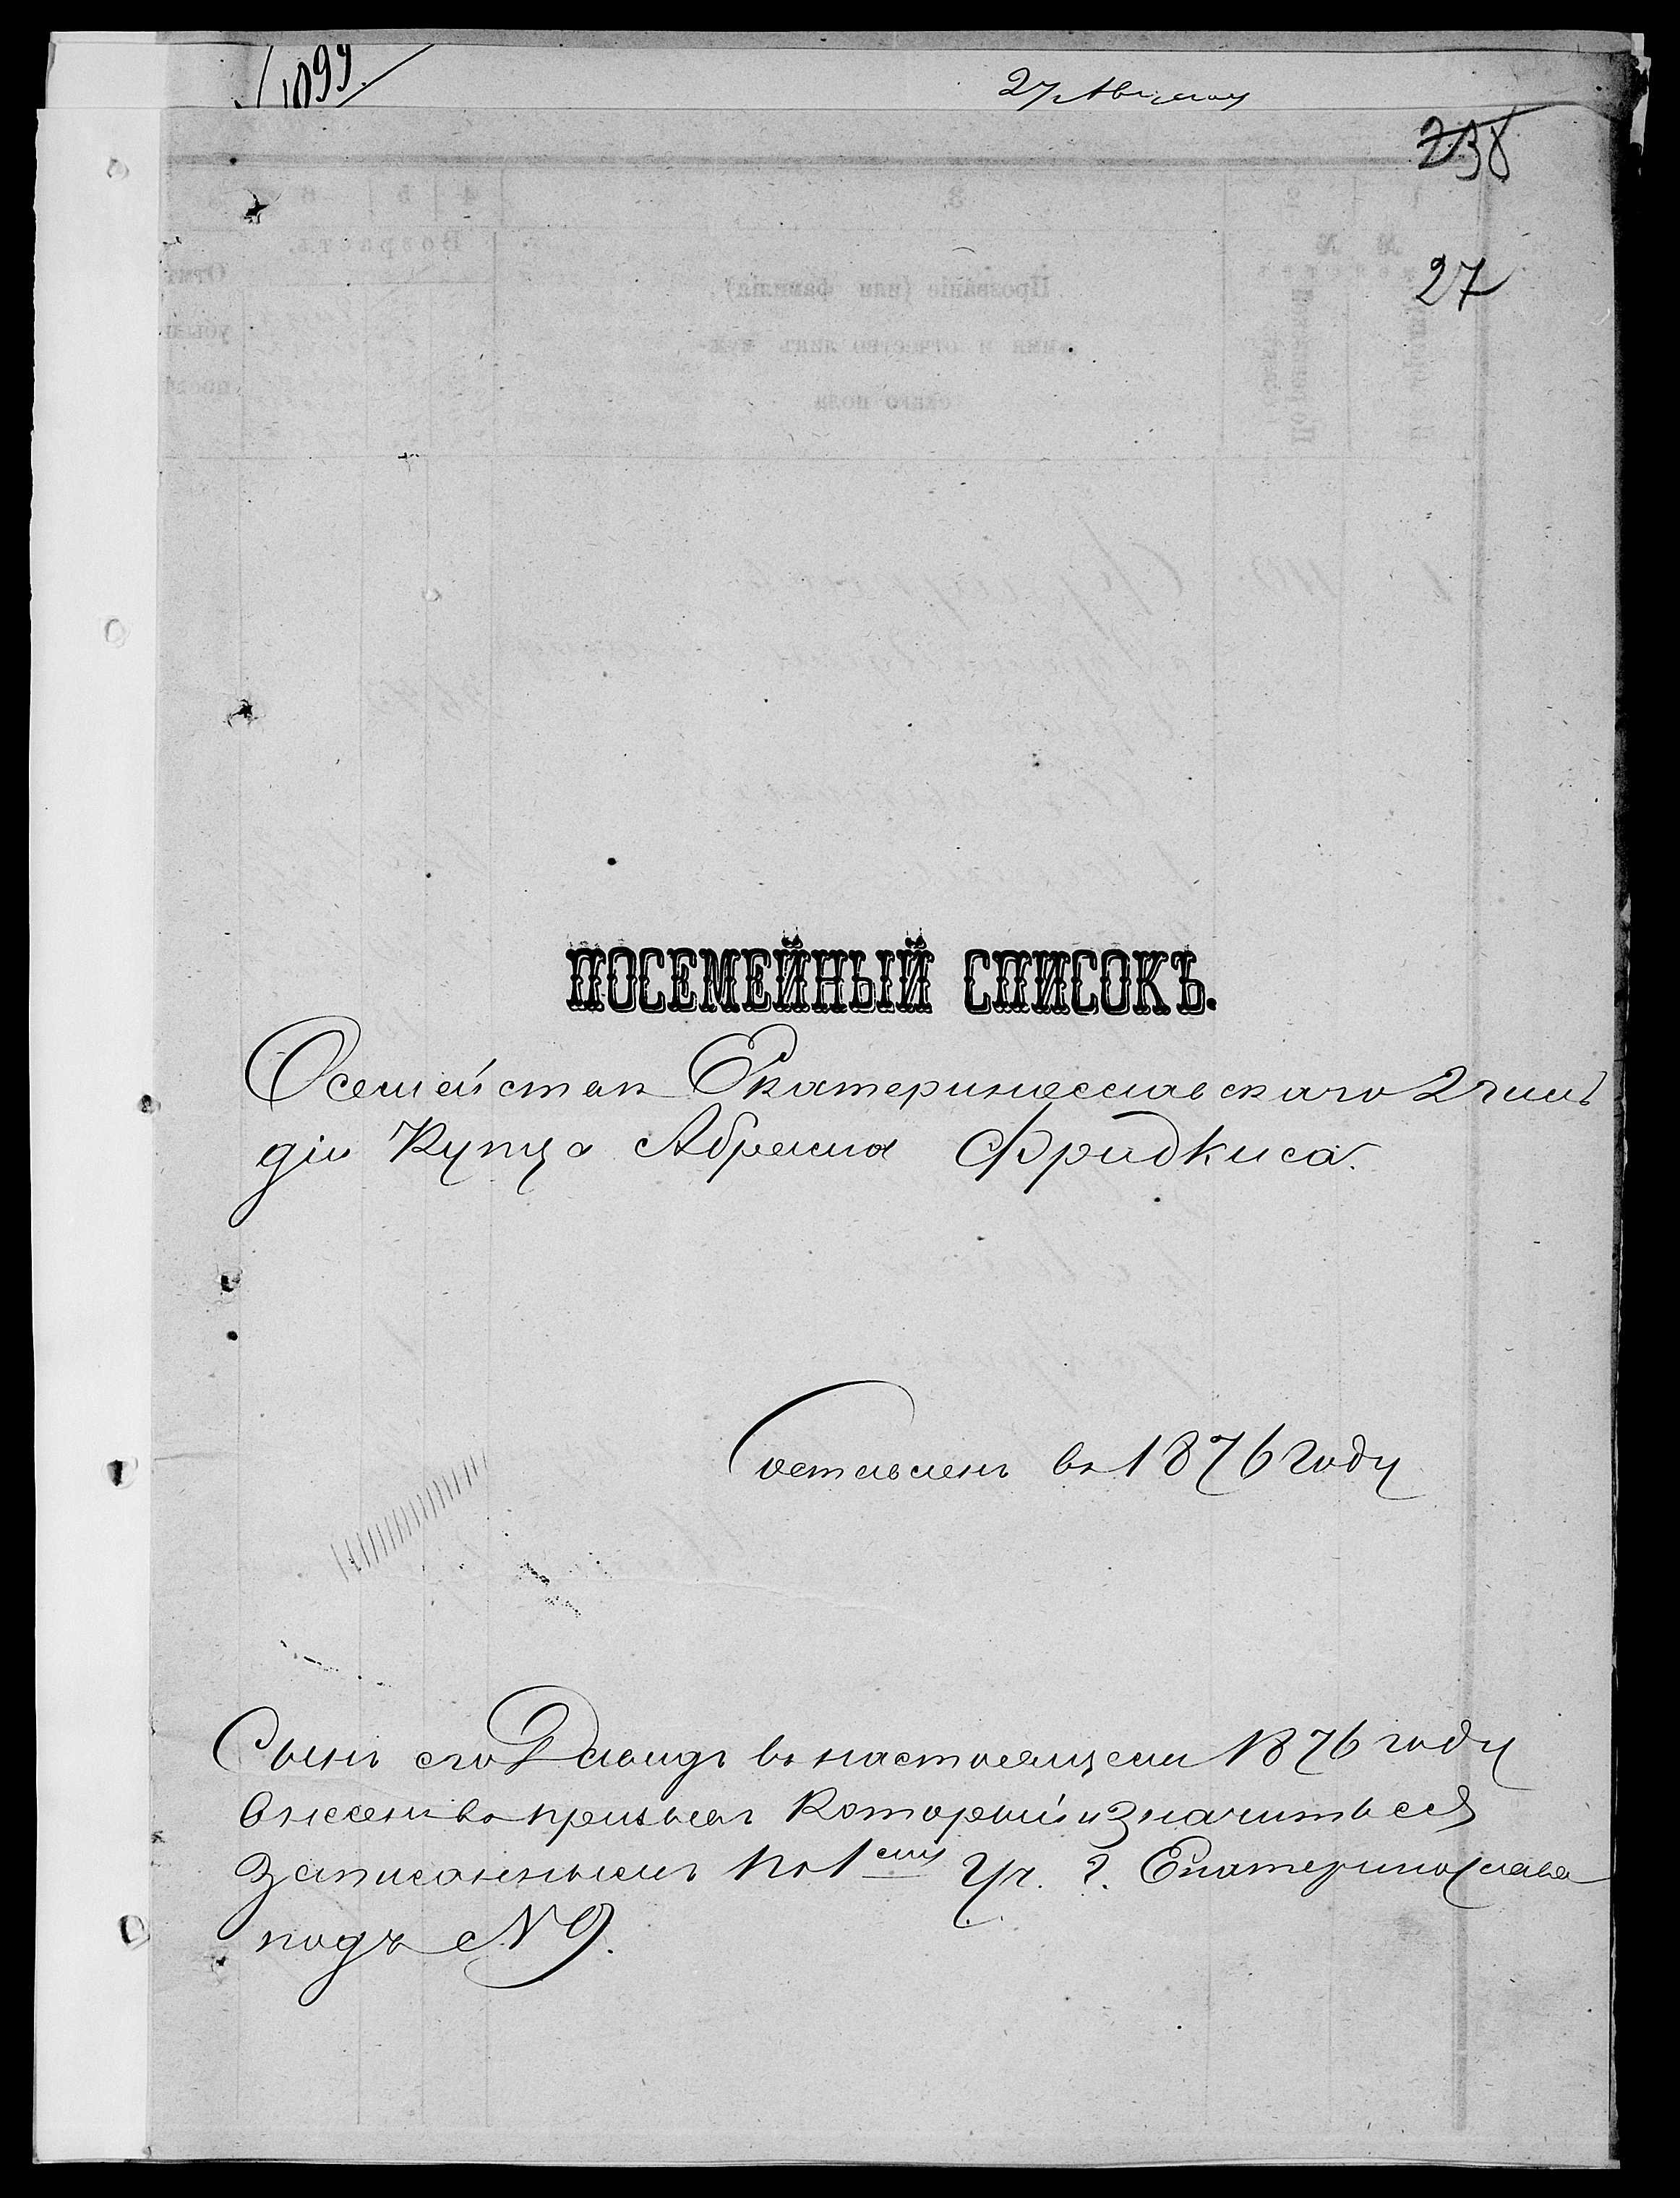 1099.
27 Августа
238
27
ПОСЕМЕЙНЫЙ СПИСОКЪ.
О семействѣ Екатеринославскаго 2 гиль
діи Купца Абрама Фридкиса.
Составленъ въ 1876 году
Сынъ его Давидъ въ настоящемъ 1876 году
внесенъ въ призывъ который и значиться
Записаннымъ по 1му Уч. г. Екатеринослава
подъ № 9.